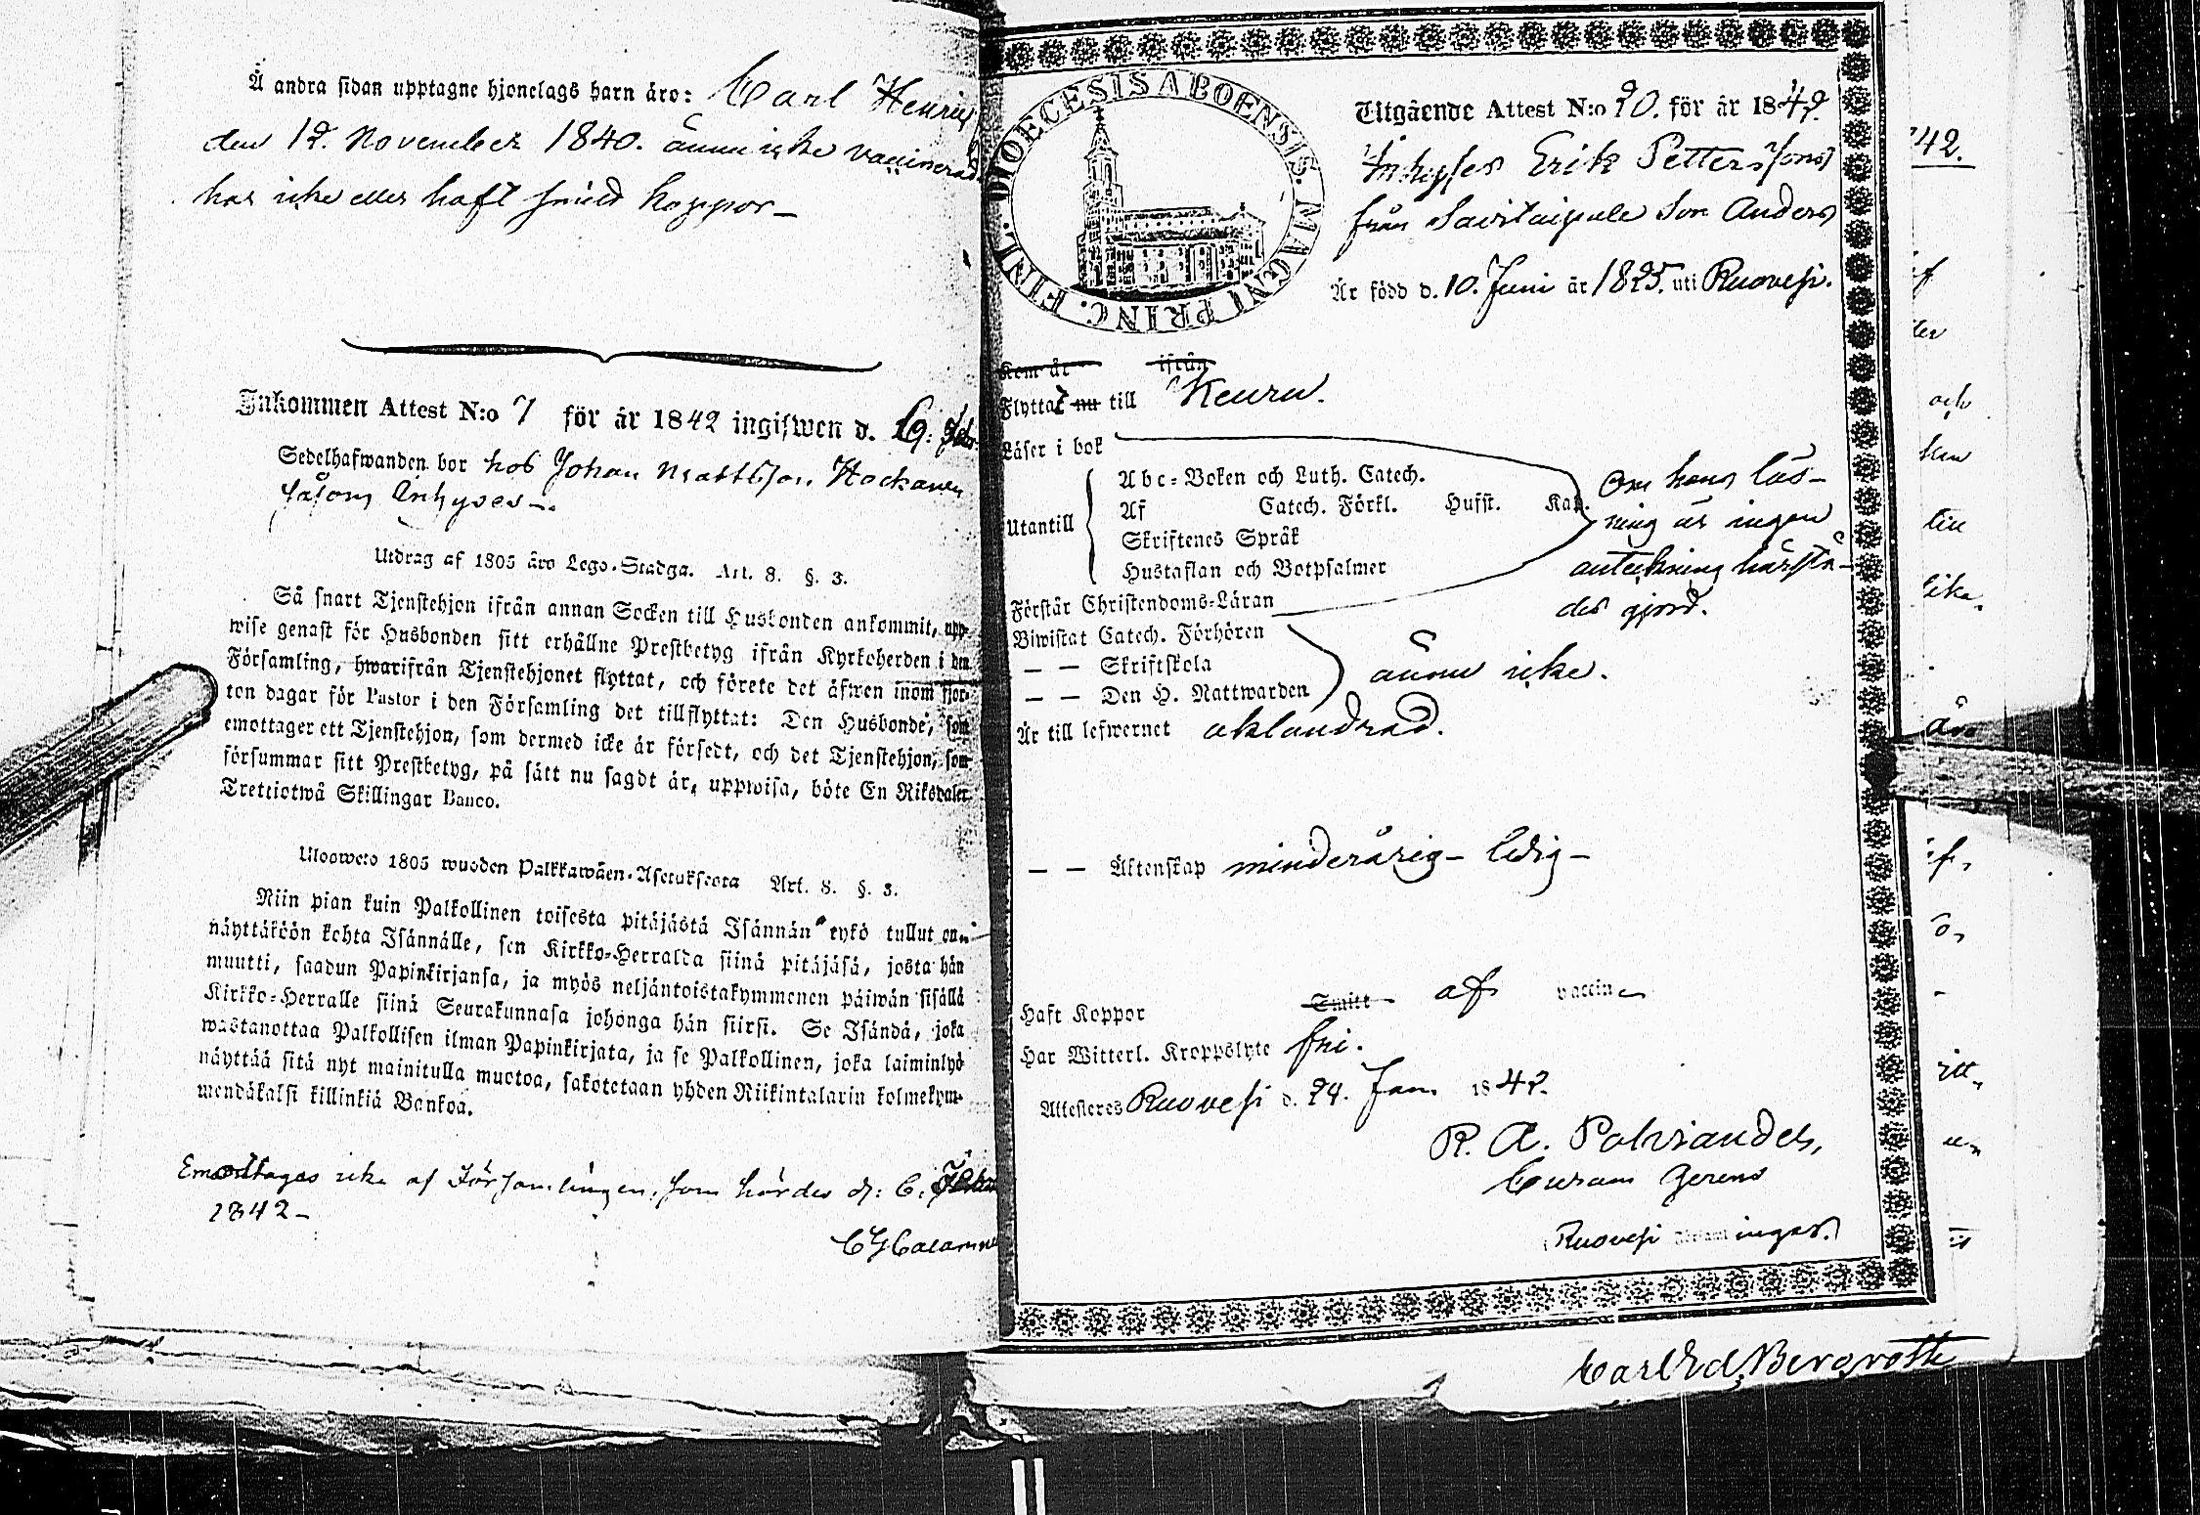 Å andra sidan upptagne hjonelags barn äro: Carl Henric
den 12. November 1840. ännu icke vaccinerad
har icke eller haft smitt koppor –
Inkommen Attest N:o 7 för år 1842 ingifwen d.
Sedelhafwanden bor hos Johan Mattsson Hockanen
såsom Inhyses –.
Utdrag af 1805 års Lego-Stadga. Art. 8. §. 3.
Så snart Tjenstehjon ifrån annan Socken till Husbonden ankommit, upp-
wise genast för Husbonden sitt erhållne Prestbetyg ifrån Kyrkoherden i den
Församling, hwarifrån Tjenstehjonet flyttat, och förete det äfwen inom fjor-
ton dagar för Pastor i den Församling det tillflyttat: Den Husbonde, som
emottager ett Tjenstehjon, som dermed icke är försedt, och det Tjenstehjon, som
försummar sitt Prestbetyg, på sätt nu sagdt är, uppwisa, böte En Riksdaler
Trettiotwå Skillingar Banco.
Ulosweto 1805 wuoden Palkkawäen-Asetuksesta Art. 8. §. 3.
Niin pian kuin Palkollinen toisesta pitäjästä Isännän tykö tullut on,
näyttäköön kohta Isännälle, sen Kirkko-Herralda siinä pitäjäsä, josta hän
muutti, saadun Papinkirjansa, ja myös neljäntoistakymmenen päiwän sisällä
Kirkko-Herralle siinä Seurakunnasa johonga hän siirsi. Se Isändä, joka
wastanottaa Palkollisen ilman Papinkirjata, ja se Palkollinen, joka laiminlyö
näyttää sitä nyt mainitulla muotoa, sakotetaan yhden Riikintalarin kolmekym-
mendäkaksi killinkiä Bankoa.
Emottages icke af Församlingen, som hördes d: 6.
1842 –
DIOECESIS ABOENSIS. MAGNI PRINC. FINL.
Utgående Attest N:o 20. för år 1842.
Inhyses Erik Petterssons
från Savitaipale Son Anders
Är född d. 10. Juni år 1825. uti Ruovesi.
Kom år ifrån
Flyttat nu till Keuru.
Läser i bok
Utantill
Abc-Boken och Luth. Catech.
Af Catech. Förkl. Husst. Kap.
Skriftenes Språk
Hustaflan och Botpsalmer
Förstår Christendoms-Läran
Om hans läs-
ning är ingen
anteckning härstä-
des gjord.
Biwistat Catech. Förhören
– – Skriftskola
– – Den H. Nattwarden
ännu icke.
Är till lefwernet oklandrad.
– – Äktenskap minderårig – ledig –
Haft Koppor Smitt af vaccine
Har Witterl. Kroppslyte fri.
Attesteres Ruovesi d. 24. Jan. 1842.
R. A. Polviander,
Curam Gerens
Carl Ed. Bergroth
42.
och